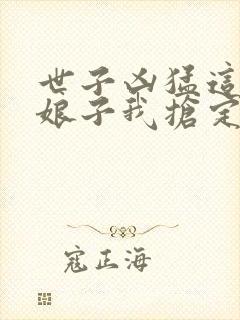 世子凶猛這
娘子我搶定
寇正海